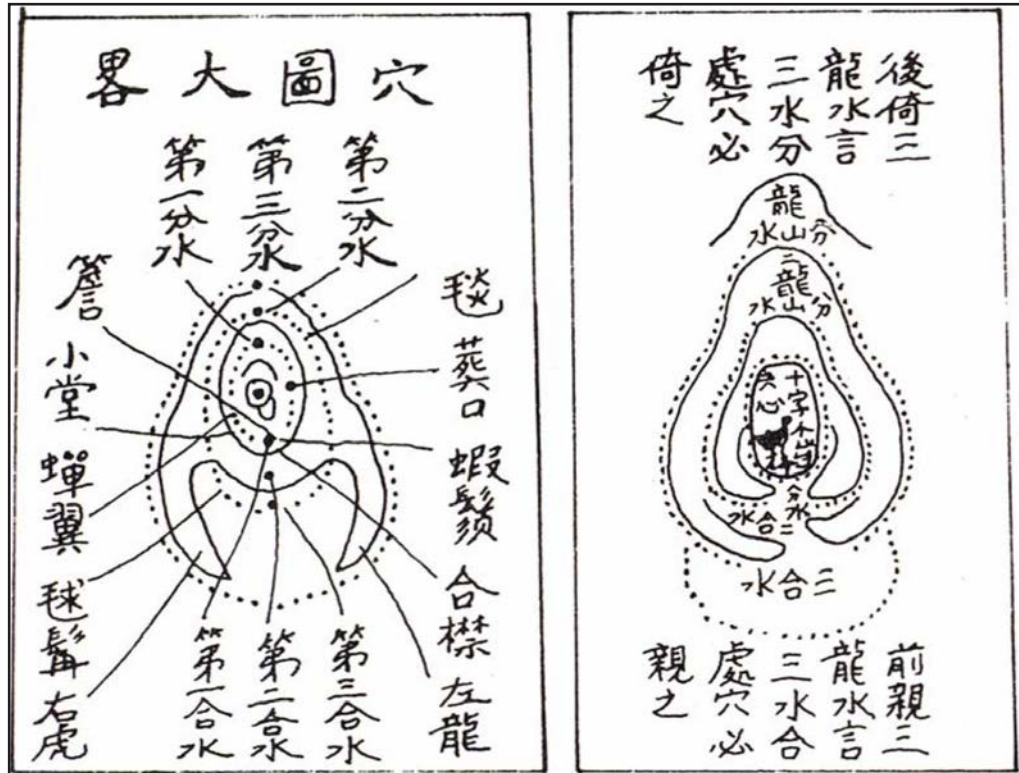 穴圖大畧
第二分水
第三分水
第一分水
毯
葬口
蝦鬚
合襟
左龍
簷
小堂
蟬翼
毬髯
右虎
第三合水
第二合水
第一合水
後倚三
龍水言
三水分
處穴必
倚之
龍
分山水
二龍
分山水
十字
心
分水
二合水
三合水
前親三
龍水言
三水合
處穴必
親之